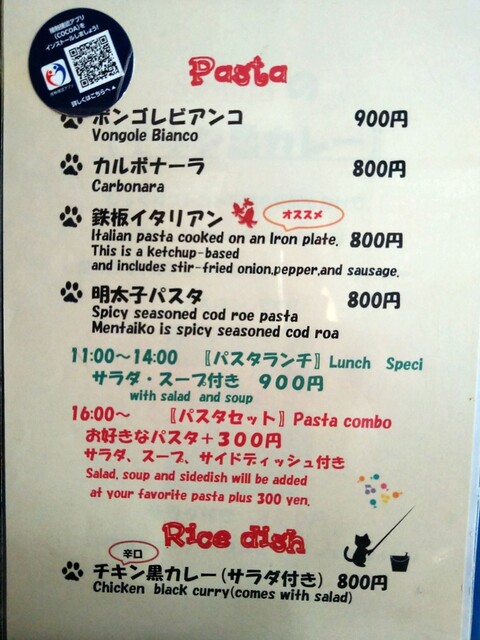 接触確認アプリ
(COCOA)を
インストールしましょう!
接触確認アプリ
詳しくはこちらへ▲
Pasta
ボンゴレビアンコ 900円
Vongole Bianco
カルボナーラ 800円
Carbonara
鉄板イタリアン オススメ
Italian pasta cooked on an Iron plate. 800円
This is a ketchup-based
and includes stir-fried onion,pepper,and sausage.
明太子パスタ 800円
Spicy seasoned cod roe pasta
Mentaiko is spicy seasoned cod roa
11:00～14:00 〖パスタランチ〗Lunch Speci
サラダ・スープ付き 900円
with salad and soup
16:00～ 〖パスタセット〗Pasta combo
お好きなパスタ＋300円
サラダ、スープ、サイドディッシュ付き
Salad, soup and sidedish will be added
at your favorite pasta plus 300 yen.
Rice dish
辛口
チキン黒カレー(サラダ付き) 800円
Chicken black curry(comes with salad)